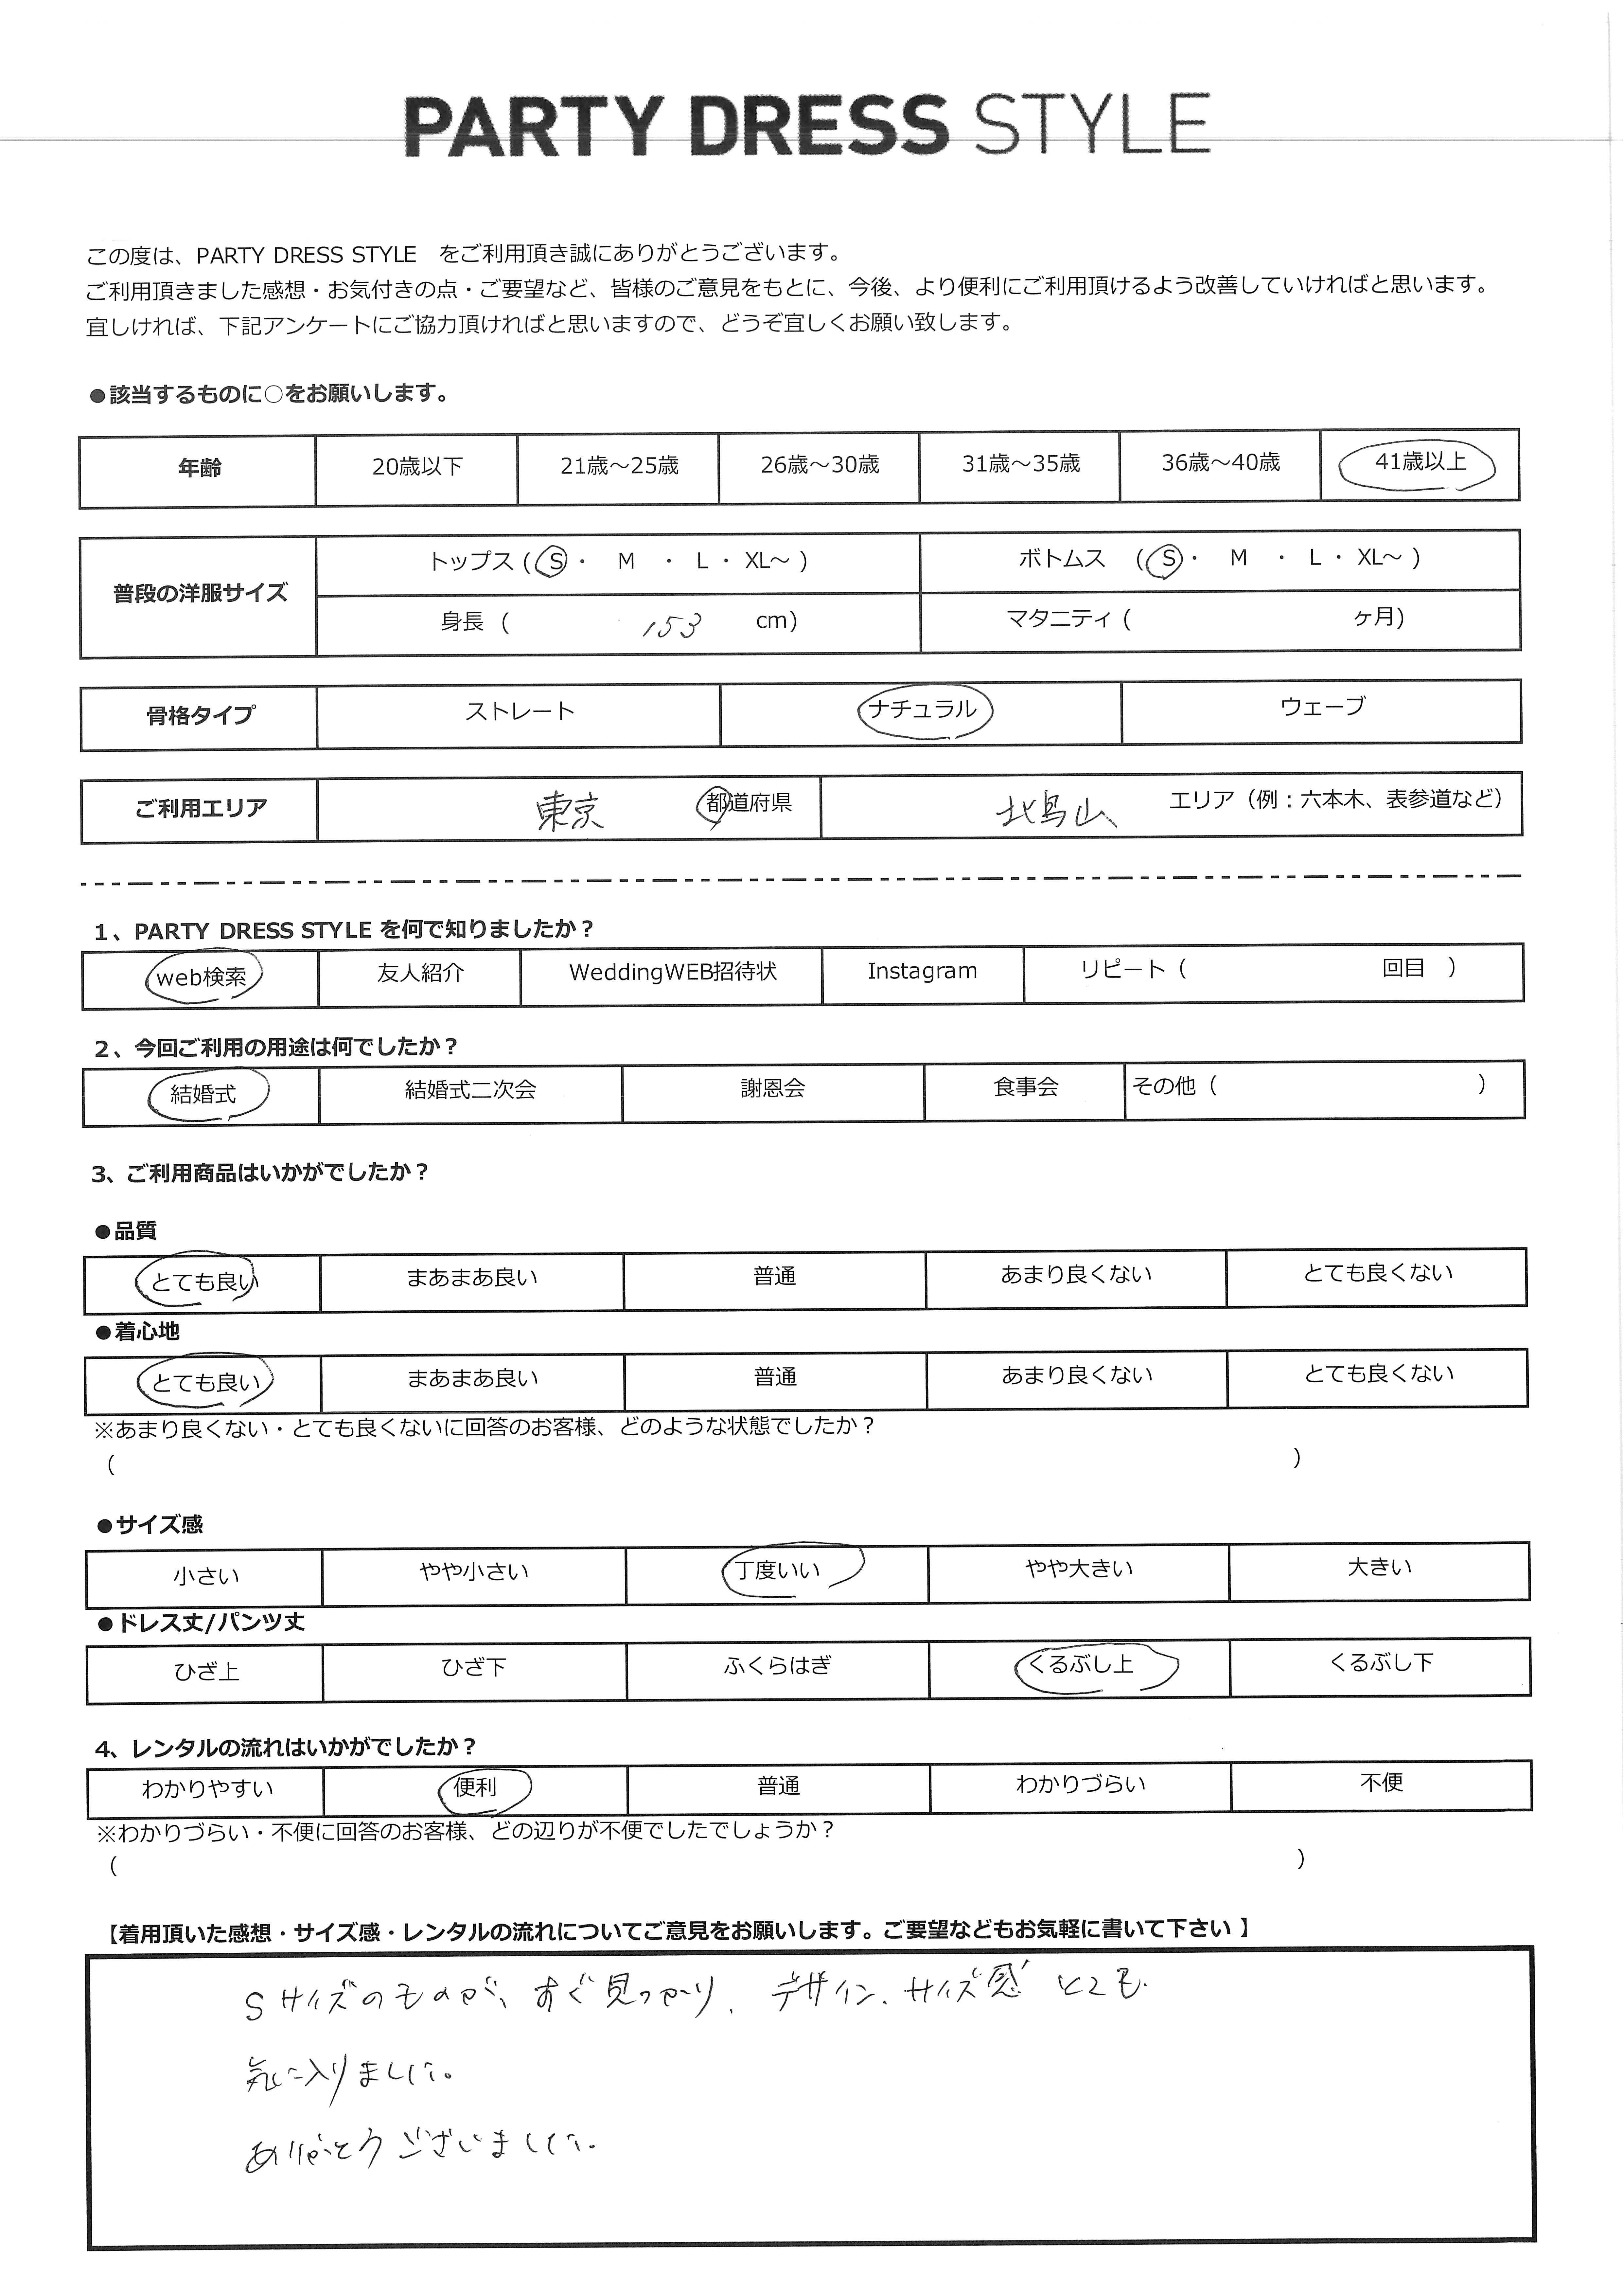 PARTY DRESS STYLE
この度は、PARTY DRESS STYLE　をご利用頂き誠にありがとうございます。
ご利用頂きました感想・お気付きの点・ご要望など、皆様のご意見をもとに、今後、より便利にご利用頂けるよう改善していければと思います。
宜しければ、下記アンケートにご協力頂ければと思いますので、どうぞ宜しくお願い致します。
●該当するものに○をお願いします。
年齢 20歳以下 21歳～25歳 26歳～30歳 31歳～35歳 36歳～40歳 41歳以上
普段の洋服サイズ
トップス ( S ・ M ・ L ・ XL～ ) ボトムス ( S ・ M ・ L ・ XL～ )
身長 ( 153 cm) マタニティ ( ヶ月)
骨格タイプ ストレート ナチュラル ウェーブ
ご利用エリア 東京 都道府県 北烏山 エリア（例：六本木、表参道など）
1、PARTY DRESS STYLE を何で知りましたか？
web検索 友人紹介 WeddingWEB招待状 Instagram リピート（ 回目 ）
2、今回ご利用の用途は何でしたか？
結婚式 結婚式二次会 謝恩会 食事会 その他（ ）
3、ご利用商品はいかがでしたか？
●品質
とても良い まあまあ良い 普通 あまり良くない とても良くない
●着心地
とても良い まあまあ良い 普通 あまり良くない とても良くない
※あまり良くない・とても良くないに回答のお客様、どのような状態でしたか？
( )
●サイズ感
小さい やや小さい 丁度いい やや大きい 大きい
●ドレス丈/パンツ丈
ひざ上 ひざ下 ふくらはぎ くるぶし上 くるぶし下
4、レンタルの流れはいかがでしたか？
わかりやすい 便利 普通 わかりづらい 不便
※わかりづらい・不便に回答のお客様、どの辺りが不便でしたでしょうか？
( )
【着用頂いた感想・サイズ感・レンタルの流れについてご意見をお願いします。ご要望などもお気軽に書いて下さい 】
Sサイズのものが、すぐ見つかり、デザイン、サイズ感とても
気に入りました。
ありがとうございました。